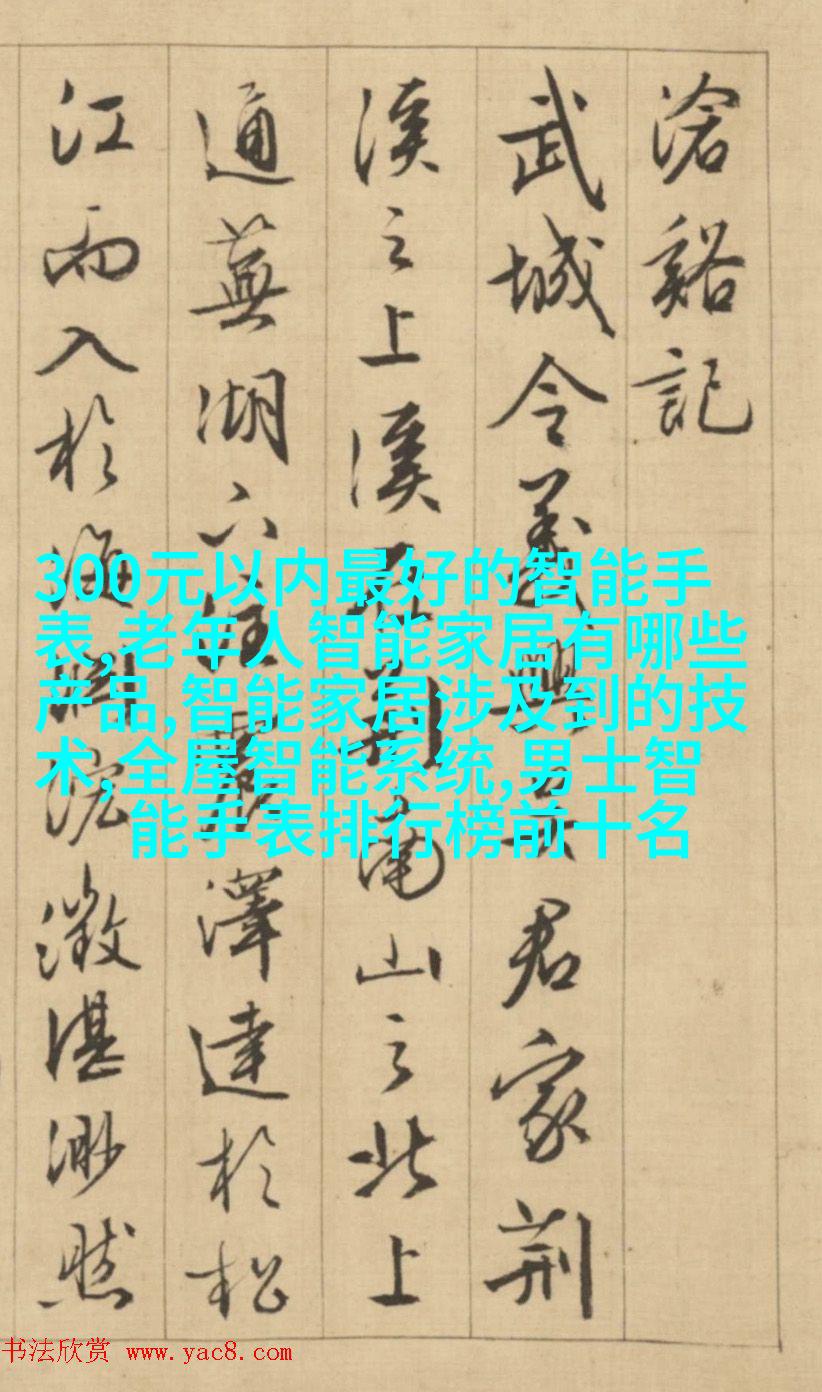 滄谿記
武城令義興吳君家荆
溪之上溪在荆南山之北上
通蕪湖下注震澤達於松
江而入於海 澂湛渺然
300元以内最好的智能手
表,老年人智能家居有哪些
产品,智能家居涉及到的技
术,全屋智能系统,男士智
能手表排行榜前十名
书法欣赏 www.yac8.com